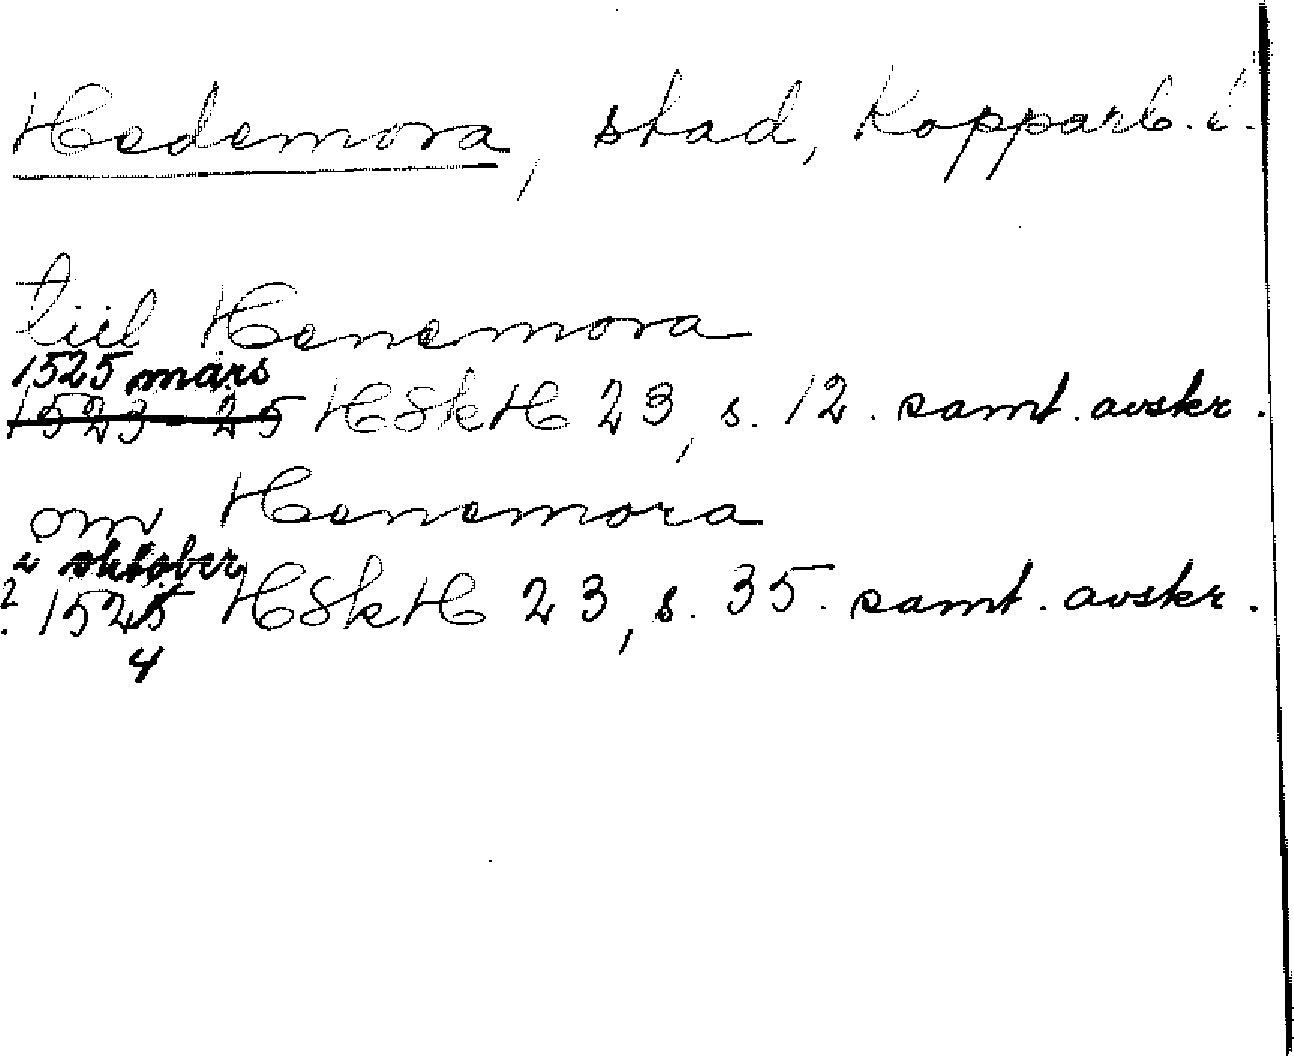 Hedemora, stad, Kopparb. l.
tiil Henemora
1525 mars
1523-25 HSkH 23, s. 12. samt. avskr.
om Henemora
oktober
? 1525 HSkH 23, s. 35. samt. avskr.
4